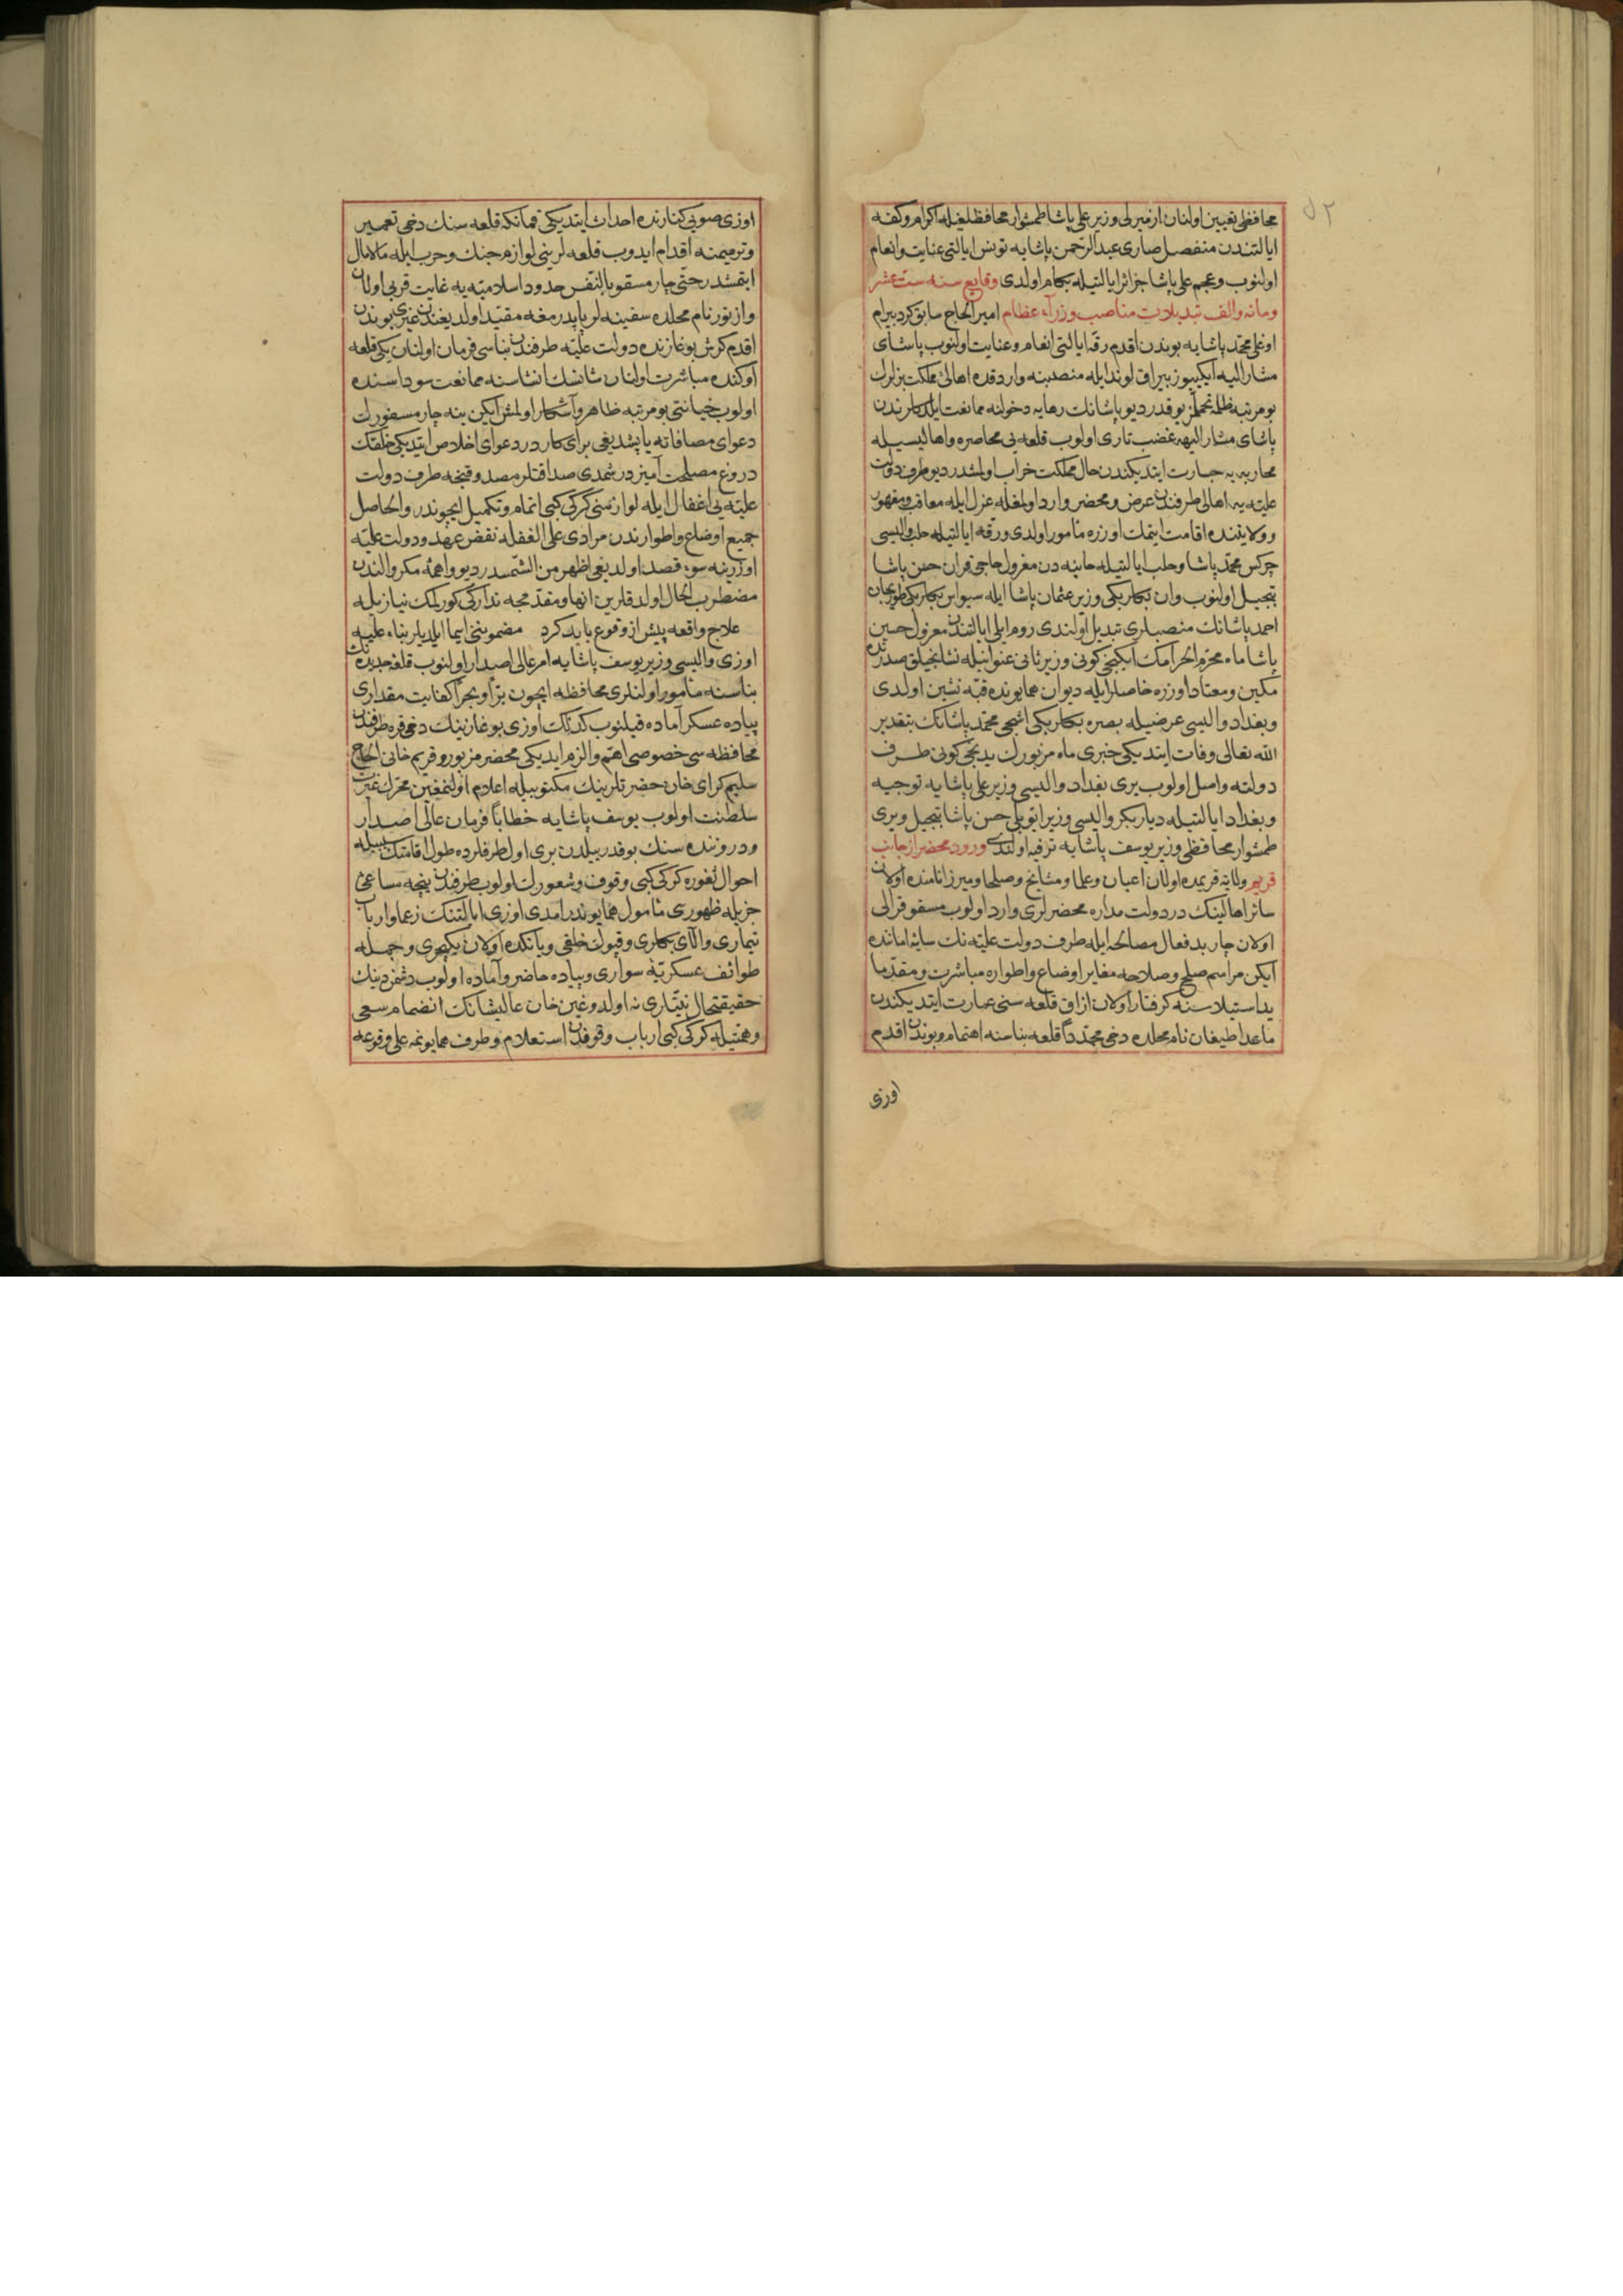 ٥٢
محافظی تعیین اولنان ازمیرلی وزیر علی پاشا طمشوار محافظلغیله اکرام و کفه
ایالتندن منفصل صاری عبدالرحمن پاشایه تونس ایالتی عنایت وانعام
اولنوب وعجم علی پاشا جزائر ایالتیله بکام اولدی وقایع سنه ست عشر
ومائه والف تبدیلات مناصب وزرآء عظام امیر الحاج سابق کرد بیرام
اوغلی محمد پاشایه بوندن اقدم رقه ایالتی انعام وعنایت اولنوب پاشای
مشار الیه ایکییوز بیراق لوند ایله منصبنه واردقده اهالئ مملکت بزلرك
بو مرتبه ظلمه تحملمز یوقدر دیو پاشانك رهایه دخولنه ممانعت ایلدکلرندن
پاشای مشار الیهه غضب تاری اولوب قلعه یی محاصره واهالیسیله
محاربه یه جسارت ایتدیکندن حال مملکت خراب اولمشدر دیو طرف دولت
علیّه یه اهالی طرفندن عرض ومحضر وارد اولمغله عزل ایله معاقب ومقهور
و ولایتنده اقامت ایتمك اوزره مأمور اولدی ورقه ایالتیله حلب والیسی
چرکس محمد پاشا وحلب ایالتیله خانیه دن معزول حاجی قران حسن پاشا
تبجیل اولنوب وان بکلربکی وزیر عثمان پاشا ایله سیواس بکلربکی طورنجان
احمد پاشانك منصبلری تبدیل اولندی روم ایلی ایالتندن معزول حسین
پاشا ماه محرم الحرامك ایکنجی کونی وزیر ثانی عنوانیله نشانجیلق صدرنده
مکین ومعتاد اوزره خاصلر ایله دیوان همایونده قبّه نشین اولدی
وبغداد والیسی عرضیله بصره بکلربکی اشجی محمد پاشانك بتقدیر
الله تعالی وفات ایتدیکی خبری ماه مزبورك یدنجی کونی طرف
دولته واصل اولوب یری بغداد والیسی وزیر علی پاشایه توجیه
وبغداد ایالتیله دیاربکر والیسی وزیر ایوبلی حسن پاشا تبجیل ویری
طمشوار محافظی وزیر یوسف پاشایه ترفیه اولندی ورود محضر از جانب
قریم ولایة قریمده اولان اعیان وعلما ومشایخ وصلحا ومیرزا نامنده اولان
سائر اهالینك در دولت مداره محضرلری وارد اولوب مسقو قرالی
اولان چار بدفعال مصالحه ایله طرف دولت علیّه نك سایۀ امانده
ایکن مراسم صلح وصلاحه مغایر اوضاع واطواره مباشرت ومقدّما
ید استیلاسنه کرفتار اولان ازاق قلعه سنی عمارت ایتدیکندن
ماعدا طیغان نام محلده دخی مجدّدًا قلعه بناسنه اهتمام وبوندن اقدم
اوزی
اوزی صویی کنارنده احداث ایتدیکی قمانکه قلعه سنك دخی تعمیر
وترمیمنه اقدام ایدوب قلعه لرینی لوازم جنك وحرب ایله مالامال
ایتمشدر حتی چار مسقو بالنفس حدود اسلامیّه یه غایت قربی اولان
وازنور نام محلده سفینه لر یاپدرمغه مقیّد اولدیغندن غیری بوندن
اقدم کرش بوغازنده دولت علیّه طرفندن بناسی فرمان اولنان یکی قلعه
اوکنده مباشرت اولنان شانشك انشاسنه ممانعت سوداسنده
اولوب خیانتی بو مرتبه ظاهر وآشکار اولمش ایکن ینه چار مسفورك
دعوای مصافاته یاپشدیغی برای کاردر دعوای اخلاص ایتدیکی خلقك
دروغ مصلحت آمیزدر شمدی صداقتلر مصدوقنجه طرف دولت
علیّه یی اغفال ایله لوازمنی کرکی کبی اتمام وتکمیل ایچوندر والحاصل
جمیع اوضاع واطوارندن مرادی علی الغفله نقض عهد ودولت علیّه
اوزرینه سوء قصد اولدیغی اظهر من الشمسدر دیو واهمۀ مکر والندن
مضطرب الحال اولدقلرین انها ومقدمجه تدارکی کورلمك نیازیله
علاج واقعه پیش از وقوع باید کرد مضموننی ایما ایلدیلر بناء علیه
اوزی والیسی وزیر یوسف پاشایه امر عالی اصدار اولنوب قلعۀ جدیده نك
بناسنه مأمور اولنلری محافظه ایچون برًّا وبحرًا کفایت مقداری
پیاده عسکر آماده قیلنوب کذلك اوزی بوغازینك دخی قره طرفندن
محافظه سی خصوصی اهمّ والزم ایدیکی محضر مزبور و قریم خانی الحاج
سلیم کرای خان حضرتلرینك مکتوبیله اعلام اولنمغین محرك غیرت
سلطنت اولوب یوسف پاشایه خطابًا فرمان عالی اصدار
ودروننده سنك بو قدر ییلدن بری اول طرفلرده طول اقامتك سببیله
احوال ثغوره کرکی کبی وقوف وشعورك اولوب طرفندن نیجه مساعئ
جزیله ظهوری مأمول همایونلر امدی اوزی ایالتنك زعما وارباب
تیماری والای بکلری وقپوك خلقی ویانکده اولان یکیچری وجمله
طوائف عسکریّۀ سواری وپیاده حاضر وآماده اولوب دشمن دینك
حقیقتحال نیّتلری نه اولدوغین خان عالیشانك انضمام سعی
وهمتیله کرکی کبی ارباب وقوفدن استعلام وطرف همایونمه علی وقوعه